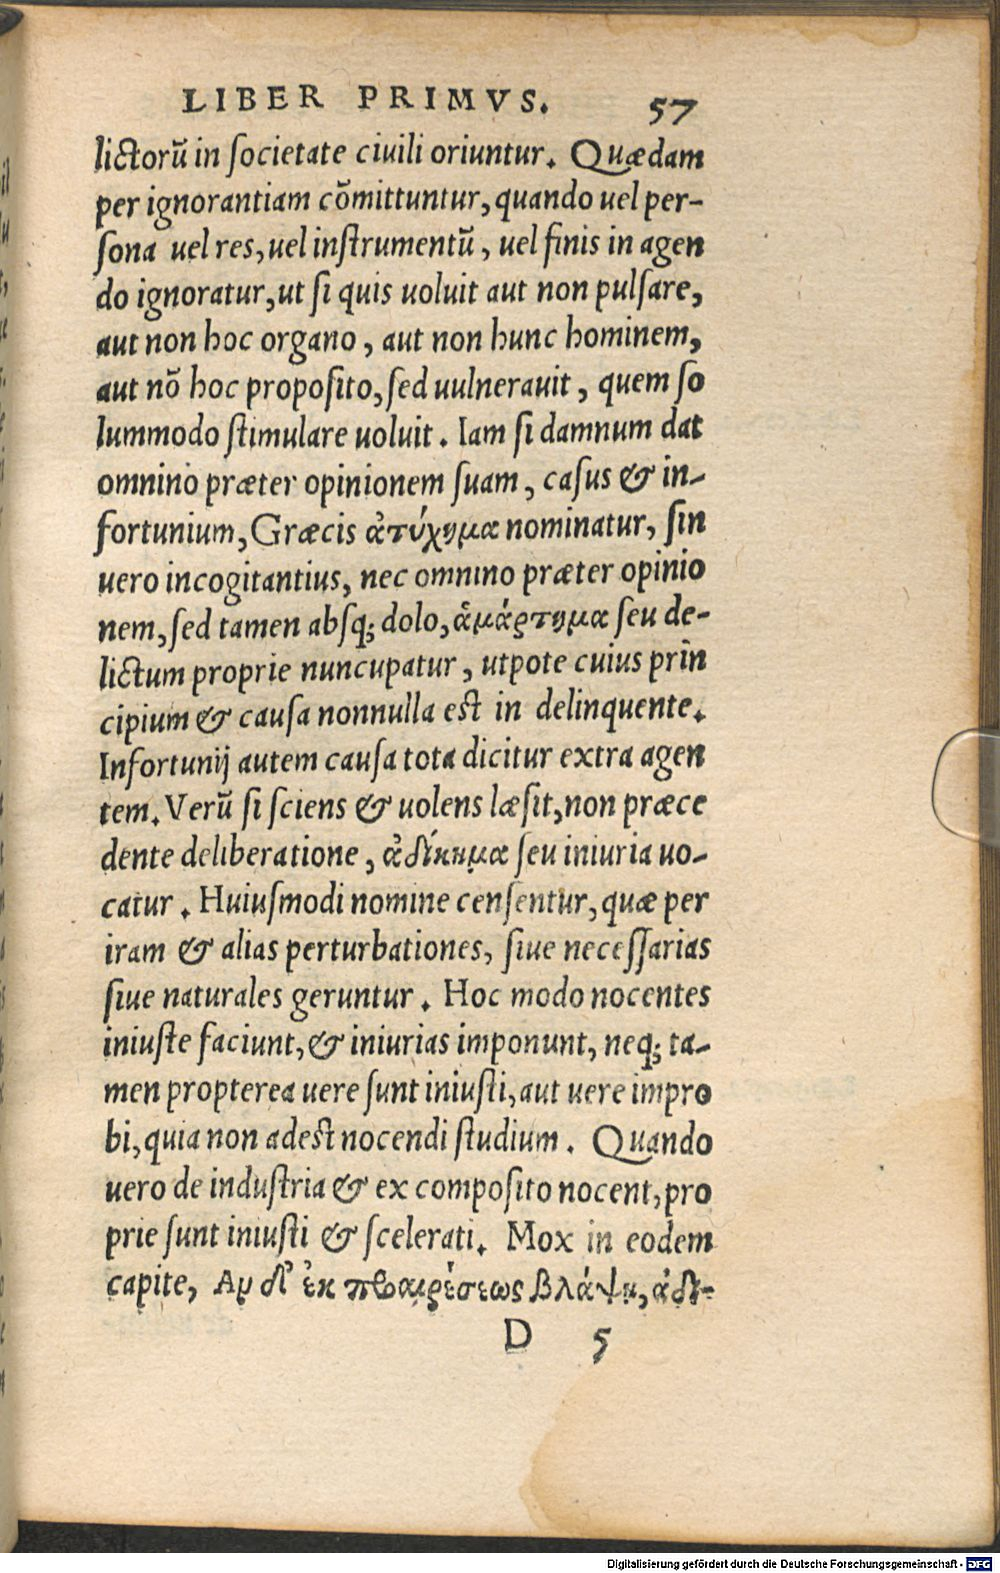 LIBER PRIMVS. 57
lictorũ in societate ciuili oriuntur. Quædam
per ignorantiam cõmittuntur, quando uel per-
sona uel res, uel instrumentũ, uel finis in agen
do ignoratur, ut si quis uoluit aut non pulsare,
aut non hoc organo, aut non hunc hominem,
aut nõ hoc proposito, sed uulnerauit, quem so
lummodo stimulare uoluit. Iam si damnum dat
omnino præter opinionem suam, casus & in-
fortunium, Græcis ἀτύχημα nominatur, sin
uero incogitantius, nec omnino præter opinio
nem, sed tamen absq; dolo, ἁμάρτημα seu de-
lictum proprie nuncupatur, utpote cuius prin
cipium & causa nonnulla est in delinquente.
Infortunij autem causa tota dicitur extra agen
tem. Verũ si sciens & uolens læsit, non præce
dente deliberatione, ἀδίκημα seu iniuria uo-
catur. Huiusmodi nomine censentur, quæ per
iram & alias perturbationes, siue necessarias
siue naturales geruntur. Hoc modo nocentes
iniuste faciunt, & iniurias imponunt, neq; ta-
men propterea uere sunt iniusti, aut uere impro
bi, quia non adest nocendi studium. Quando
uero de industria & ex composito nocent, pro
prie sunt iniusti & scelerati. Mox in eodem
capite, Αν δ' ἐκ προαιρέσεως βλάψη, ἀδι-
D 5
Digitalisierung gefördert durch die Deutsche Forschungsgemeinschaft - DFG